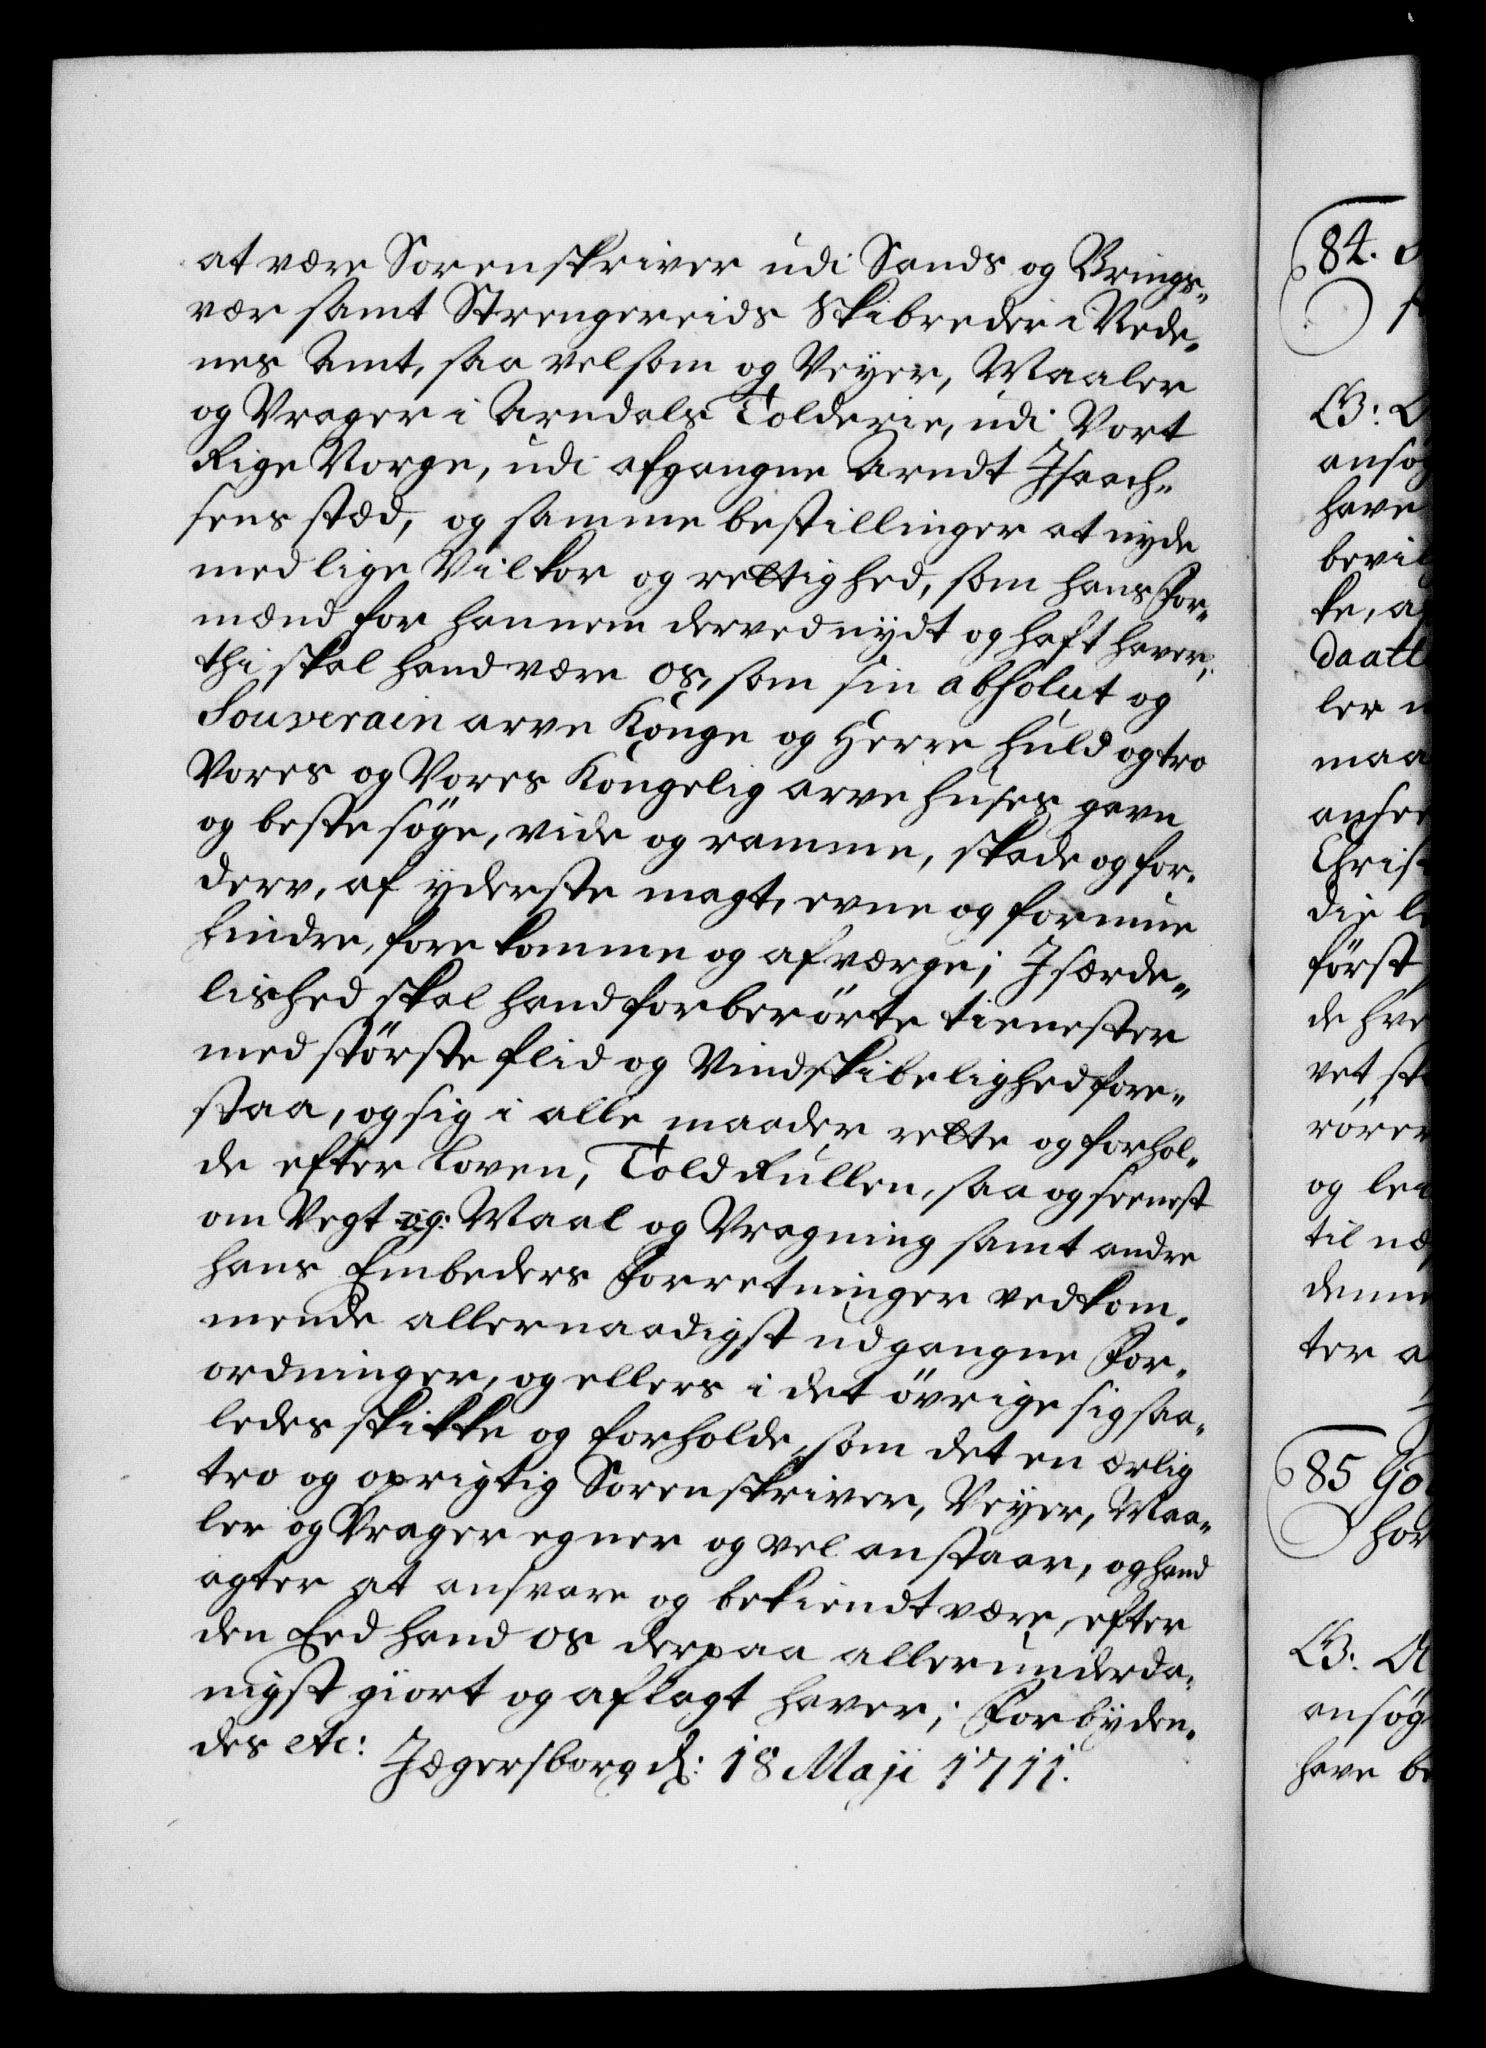 at være Sorenskriver udi Sands og Brings-
vær samt Strengereids Skibreder i Nede-
nes Amt, saa velsom og Veyer, Maaler
og Vrager i Arndals Tolderie, udi Vort
Rige Norge, udi afgangne Arndt Isaach-
sens stæd, og samme bestillinger at nyde
med lige Vilkor og rettighed, som hans for-
mænd for hannem derved nydt og haft haver;
thi skal hand være os, som sin absolut og
Souverain arve Konge og Herre huld og tro
Vores og Vores Kongelig arve huses gavn
og beste söge, vide og ramme, skade og for-
derv, af yderste magt, evne og formue
hindre, forekomme og afværge; Isærde-
lished skal hand forberörte tienester
med störste flid og Vindskibelighed fore-
staa, og sig i alle maader rette og forhol-
de efter Loven, Told Rullen, saa og seenest
om Vegt og: Maal og Vragning samt andre
hans Embeders forretninger vedkom-
mende allernaadigst udgangne For-
ordninger, og ellers i det övrige sig saa-
ledes skikke og forholde, som det en ærlig
tro og oprigtig Sorenskriver, Veyer, Maa-
ler og Vrager egner og vel anstaar, og hand
agter at ansvare og bekiendt være, efter
den Eed hand os derpaa allerunderda-
nigst giort og aflagt haver; Forbyden-
des etc: Jægersborg d: 18 Maji 1711.
84.
ansög
have
bevil
ke, a
daatt
ler
maa
ansee
Christ
die
först
de hve
vet st
rörer
og le
til næ
denne
ter a
85 Go
hor
ansög
have be